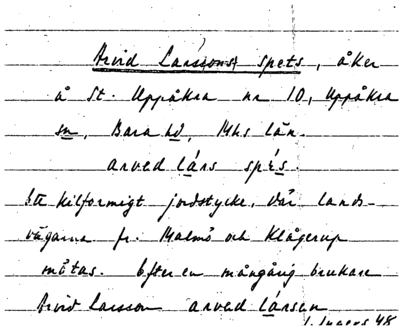 Arvid Larssons spets, åker
å St. Uppåkra nr 10, Uppåkra
sn, Bara hd, Mhs län.
arved lárs spés.
Ett kilformigt jordstycke, där lands-
vägarna fr. Malmö och Klågerup
mötas. Efter en mångårig brukare
Arvid Larsson arved lársen
J. Ingers 48